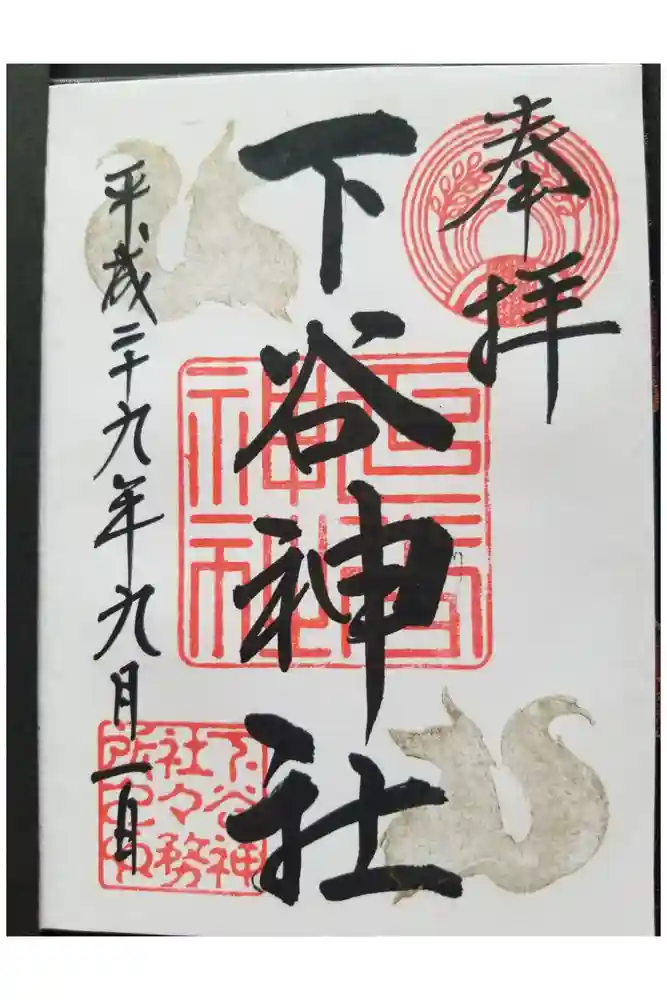 奉拝
下谷神社
平成二十九年九月一日
下谷神
社々務
所之印